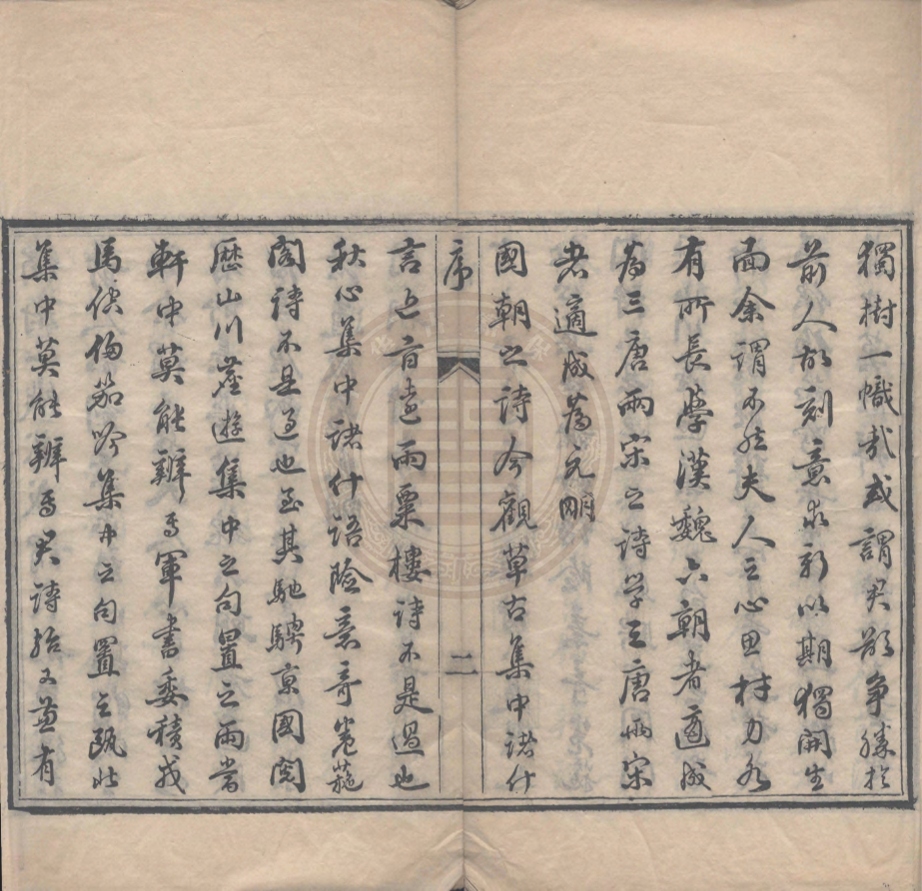 獨樹一幟哉或謂君欲爭勝於
前人故刻意求新以期獨開生
面余謂不然夫人之心思材力各
有所長學漢魏六朝者適成
為三唐兩宋之詩学三唐兩宋
者適成為元明
國朝之詩今觀草古集中諸什
序
二
言近旨遠雨粟樓詩不是過也
秋心集中諸什語險意奇卷葹
閣詩不是過也至其馳騁京國閱
歷山川遊集中之句置之兩當
軒中莫能辨焉軍書委積戎
馬倥傯笳吟集中之句置之甌北
集中莫能辨焉君詩殆又兼有